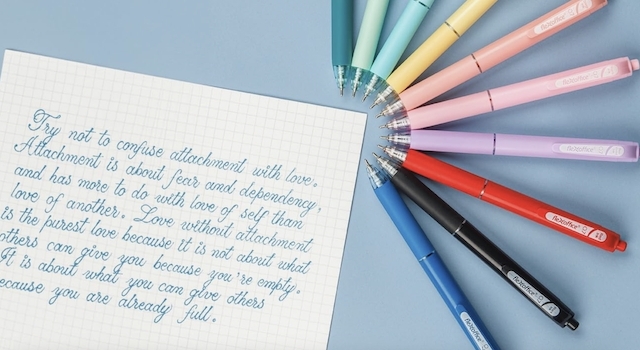 Try not to confuse attachment with love.
Attachment is about fear and dependency,
and has more to do with love of self than
love of another. Love without attachment
is the purest love because it is not about what
others can give you because you're empty.
It is about what you can give others
because you are already full.
flexoffice
flexoffice
flexoffice
flexoffice
flexoffice
flexoffice